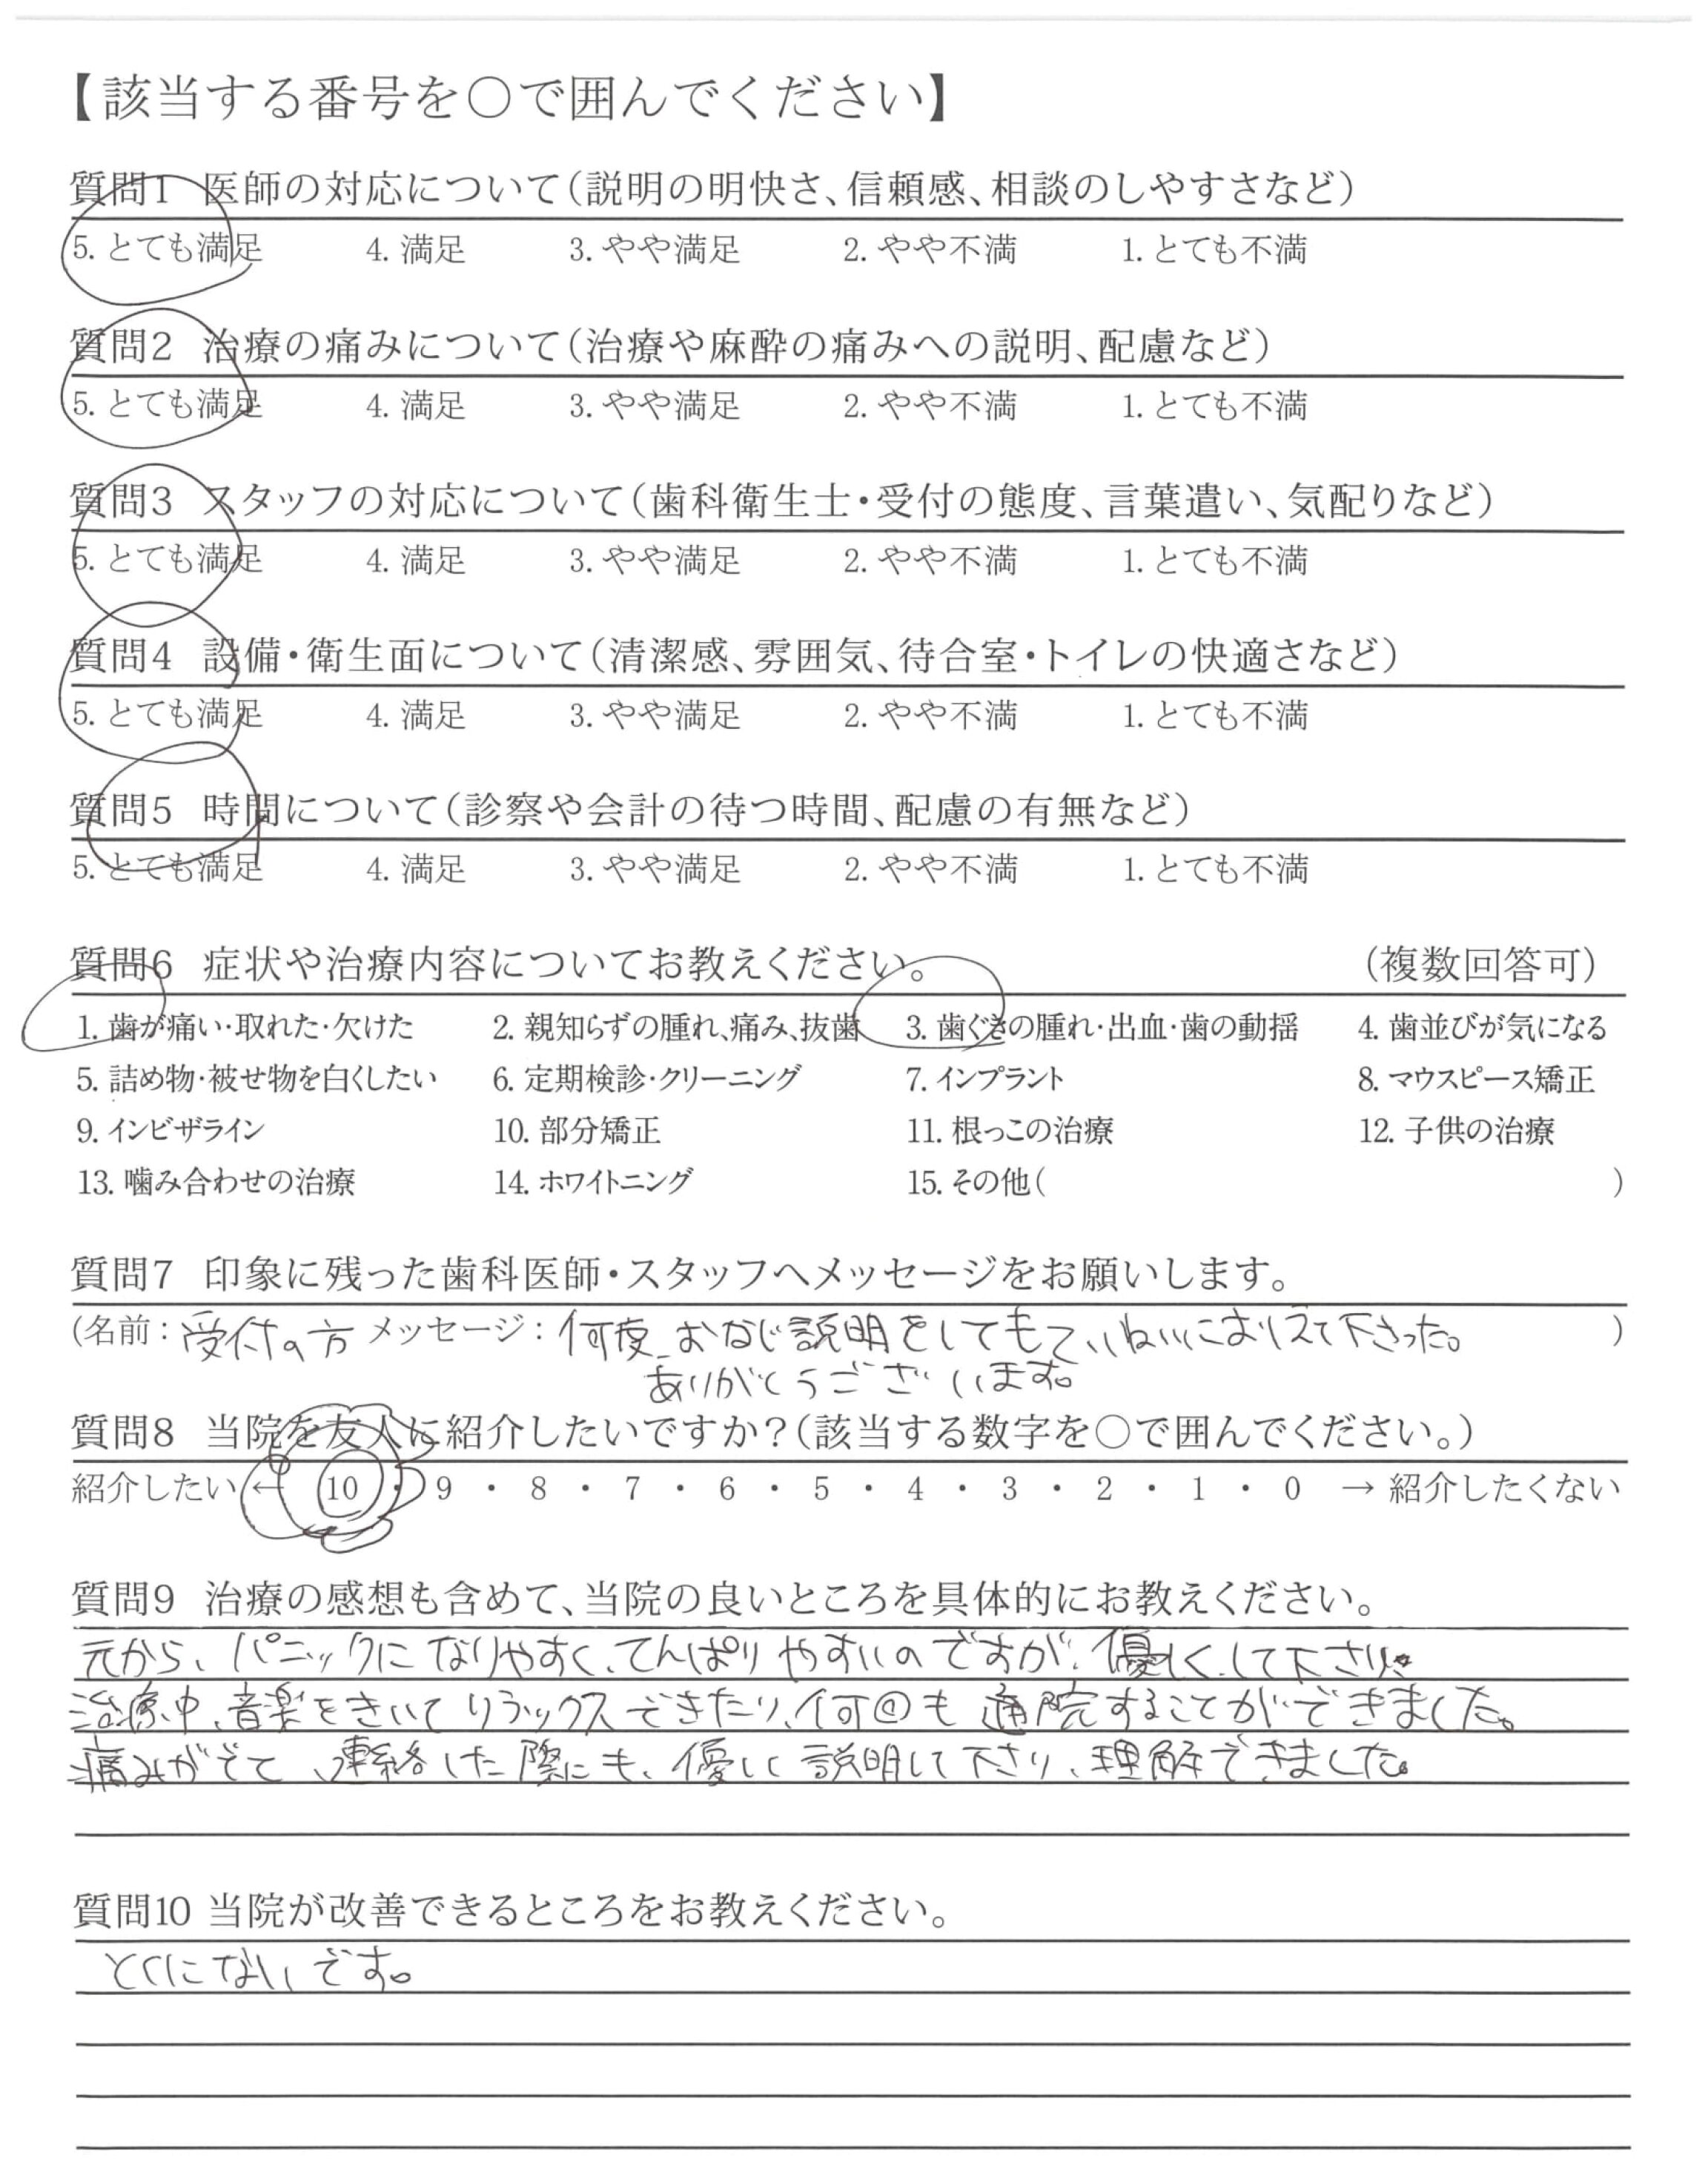 【該当する番号を○で囲んでください】
質問1 医師の対応について（説明の明快さ、信頼感、相談のしやすさなど）
5. とても満足 4. 満足 3. やや満足 2. やや不満 1. とても不満
質問2 治療の痛みについて（治療や麻酔の痛みへの説明、配慮など）
5. とても満足 4. 満足 3. やや満足 2. やや不満 1. とても不満
質問3 スタッフの対応について（歯科衛生士・受付の態度、言葉遣い、気配りなど）
5. とても満足 4. 満足 3. やや満足 2. やや不満 1. とても不満
質問4 設備・衛生面について（清潔感、雰囲気、待合室・トイレの快適さなど）
5. とても満足 4. 満足 3. やや満足 2. やや不満 1. とても不満
質問5 時間について（診察や会計の待つ時間、配慮の有無など）
5. とても満足 4. 満足 3. やや満足 2. やや不満 1. とても不満
質問6 症状や治療内容についてお教えください。 （複数回答可）
1. 歯が痛い・取れた・欠けた 2. 親知らずの腫れ、痛み、抜歯 3. 歯ぐきの腫れ・出血・歯の動揺 4. 歯並びが気になる
5. 詰め物・被せ物を白くしたい 6. 定期検診・クリーニング 7. インプラント 8. マウスピース矯正
9. インビザライン 10. 部分矯正 11. 根っこの治療 12. 子供の治療
13. 噛み合わせの治療 14. ホワイトニング 15. その他（ ）
質問7 印象に残った歯科医師・スタッフへメッセージをお願いします。
（名前：受付の方 メッセージ：何度、おなじ説明をしてもていねいにおしえて下さった。 ）
ありがとうございます。
質問8 当院を友人に紹介したいですか？（該当する数字を○で囲んでください。）
紹介したい ← 10 ・ 9 ・ 8 ・ 7 ・ 6 ・ 5 ・ 4 ・ 3 ・ 2 ・ 1 ・ 0 → 紹介したくない
質問9 治療の感想も含めて、当院の良いところを具体的にお教えください。
元から、パニックになりやすく、てんぱりやすいのですが、優しくして下さり、
治療中、音楽をきいてリラックスできたり、何回も通院することができました。
痛みがでて、連絡した際にも、優しく説明して下さり、理解できました。
質問10 当院が改善できるところをお教えください。
とくにないです。